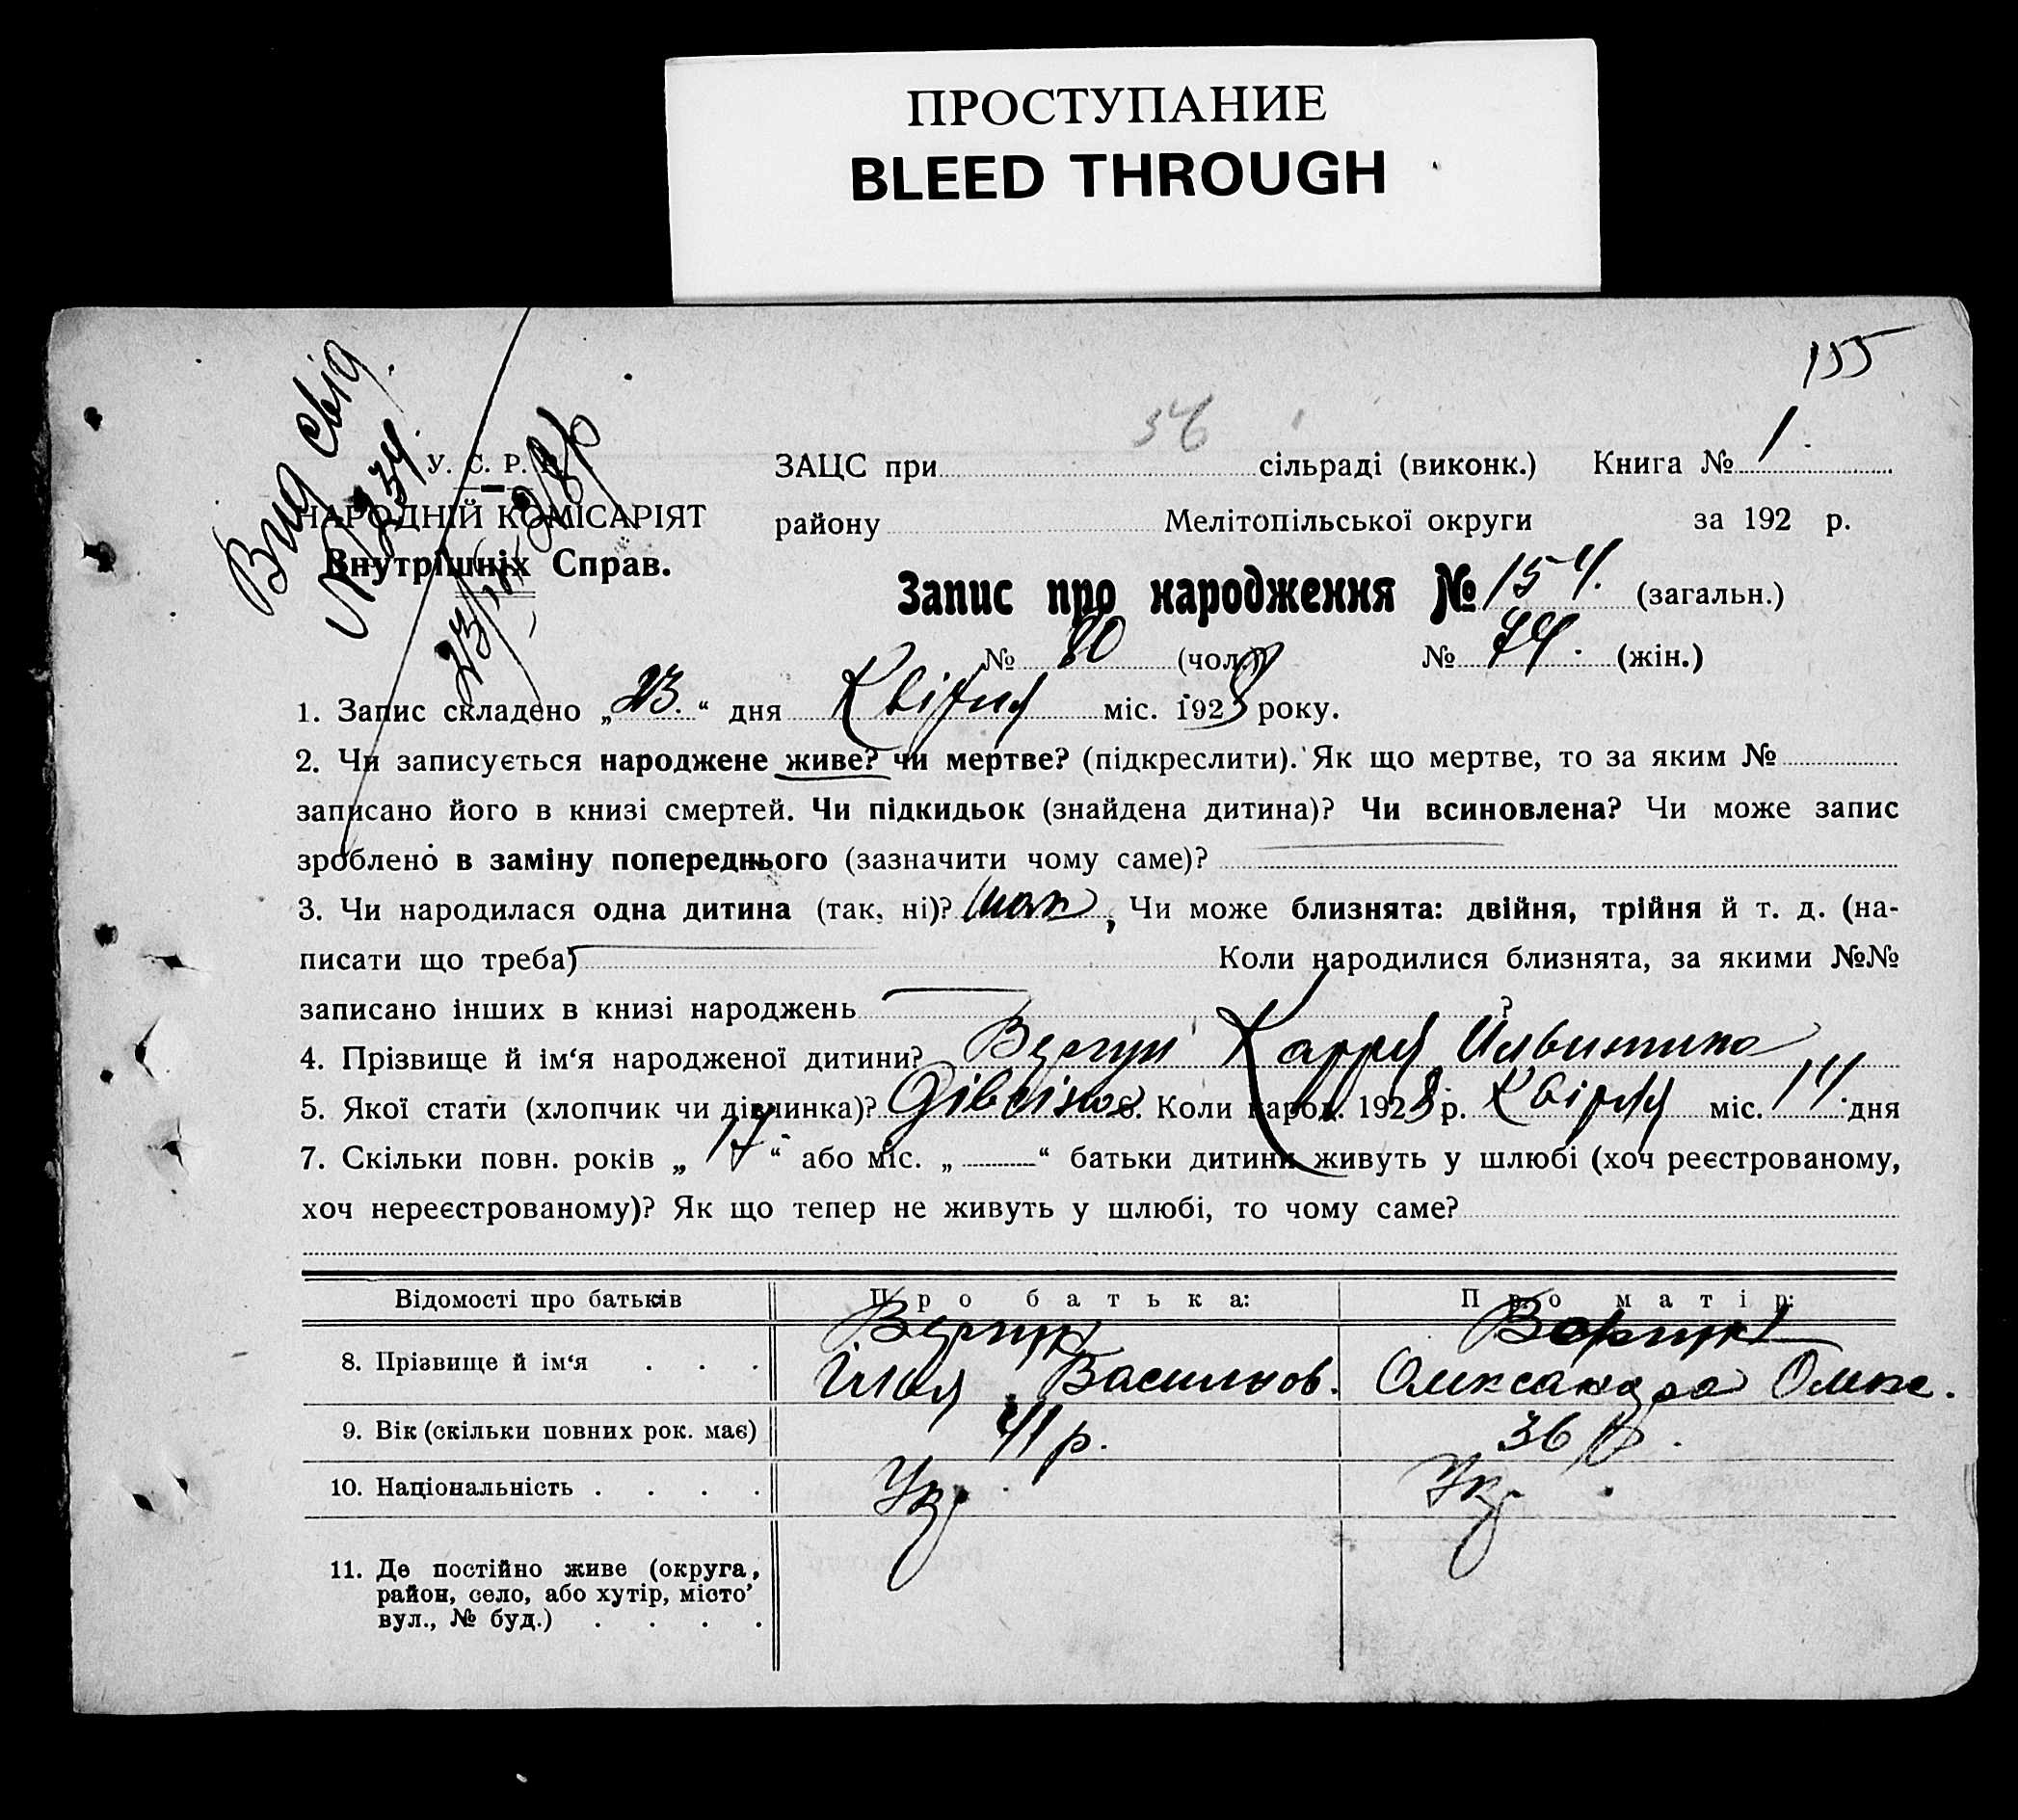 ПРОСТУПАНИЕ
BLEED THROUGH
155
56
Вид свід
№ 234
У. С. Р. Р.
НАРОДНІЙ КОМІСАРІЯТ
Внутрішніх Справ.
ЗАЦС при сільраді (виконк.) Книга № 1
району Мелітопільської округи за 192 р.
Запис про народження № 154. (загальн.)
№ 80 (чол.) № 74. (жін.)
1. Запис складено „23.“ дня Квітня міс. 1928 року.
2. Чи записується народжене живе? чи мертве? (підкреслити). Як що мертве, то за яким №
записано його в книзі смертей. Чи підкидьок (знайдена дитина)? Чи всиновлена? Чи може запис
зроблено в заміну попереднього (зазначити чому саме)?
3. Чи народилася одна дитина (так, ні)? так, Чи може близнята: двійня, трійня й т. д. (на-
писати що треба) Коли народилися близнята, за якими №№
записано інших в книзі народжень ?
4. Прізвище й ім‘я народженої дитини?
5. Якої стати (хлопчик чи дівчинка)? Дівчинка 6. Коли народ. 1928 р. Квітня міс. 14 дня
7. Скільки повн. років „17“ або міс. „ “ батьки дитини живуть у шлюбі (хоч реєстрованому,
хоч нереєстрованому)? Як що тепер не живуть у шлюбі, то чому саме?
Відомості про батьків Про батька: Про матір:
8. Прізвище й ім‘я . . .
Ілля Васильов. Олександра Олекс.
9. Вік (скільки повних рок. має) 41 р. 36 р.
10. Національність . . . . Укр. Укр.
11. Де постійно живе (округа,
район, село, або хутір, місто’
вул., № буд.) . . . .